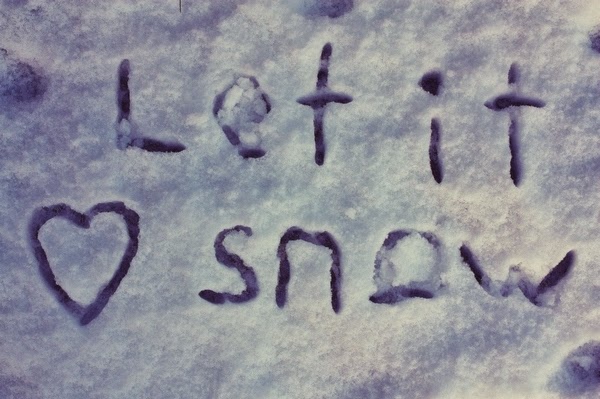 Let it
♡ snow